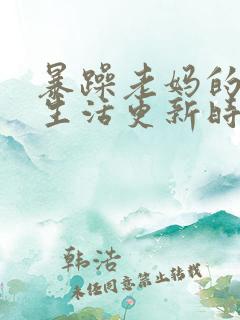 暴躁老妈的
生活更新时
韩浩
未经同意禁止转载